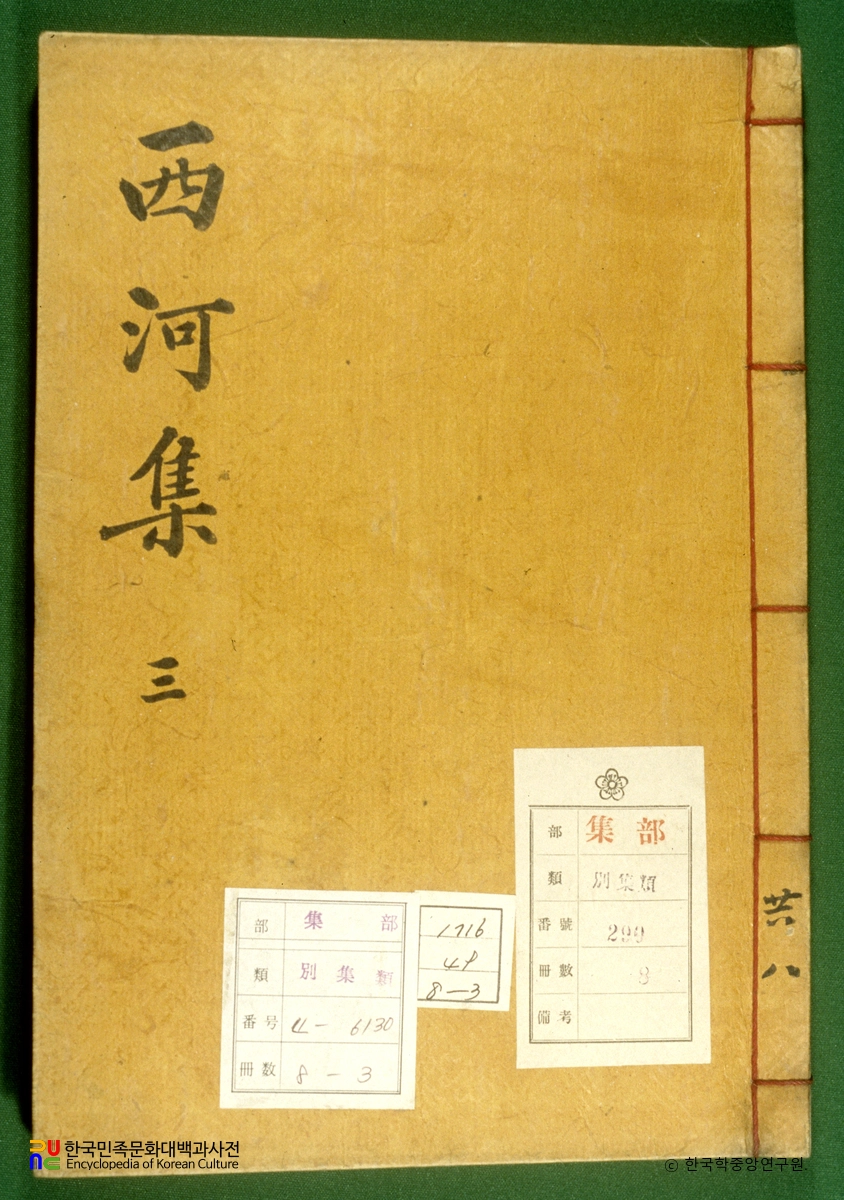 西河集 三
共八
部 集部
類 別集類
番號 299
冊數 8
備考
1716
48
8-3
部 集部
類 別集類
番号 4-6130
冊数 8-3
한국민족문화대백과사전
Encyclopedia of Korean Culture
© 한국학중앙연구원